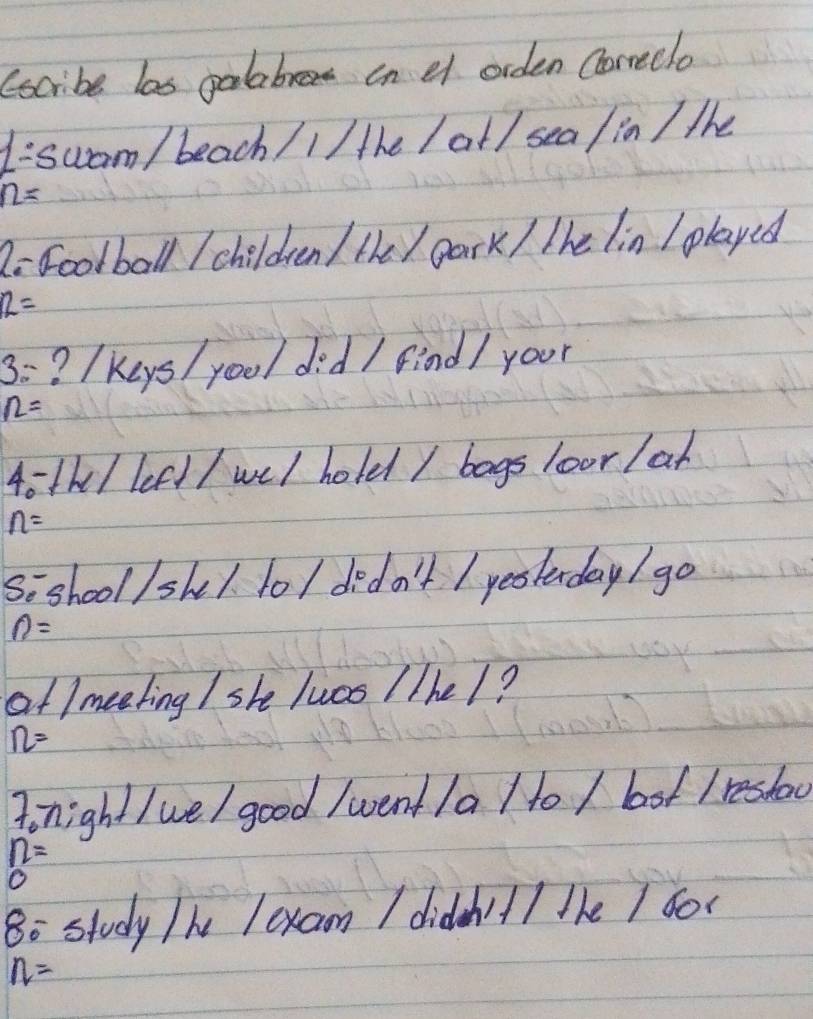 Escribe las palabras en el orden Correcto
1.- swam / beach / I / the / at / sea / in / the
R=
2.- Football / children / the / park / the / in / played
R=
3.- ? / Keys / you / did / find / your
R=
4.- the / left / we / hotel / bags / our / at
R=
5.- shool / she / to / didn't / yesterday / go
R=
at / meeting / she / was / the / ?
R=
7.- night / we / good / went / a / to / last / restau
R=
8.- study / he / exam / didn't / the / for
R=